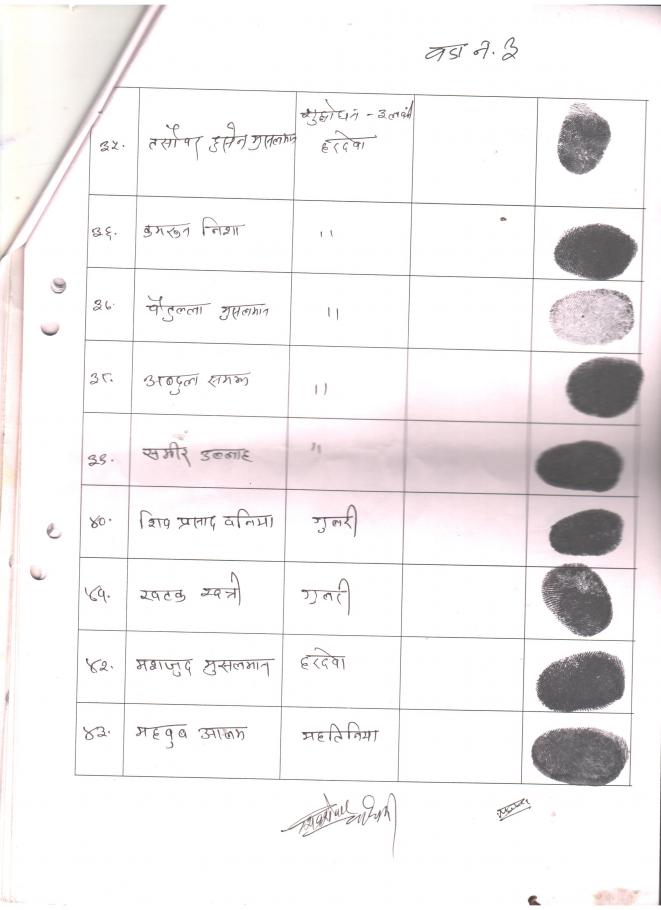 वडा नं. ३
३५. तसौवर हुसेन मुसलमान शुद्धोधन - ३ लवनी हरदेवा
३६. कुमरुन निशा "
३७. वैतुल्ला मुसलमान "
३८. अब्दुल समद "
३९. समीर उल्लाह "
४०. शिव प्रसाद वनिया गुलरी
४१. खटकु खत्री गुलरी
४२. मशजुद मुसलमान हरदेवा
४३. महवुव आलम महतिनिया